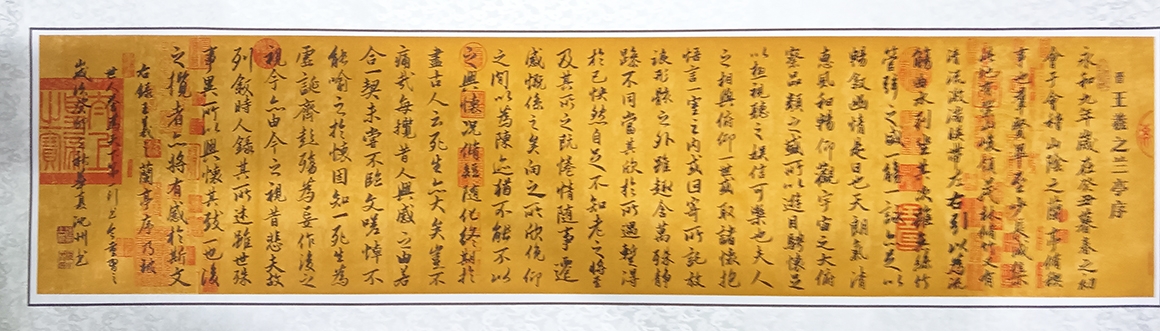 王羲之兰亭序
永和九年歲在癸丑暮春之初
會于會稽山陰之蘭亭脩禊
事也羣賢畢至少長咸集
此地有崇山峻領茂林脩竹又有
清流激湍暎帶左右引以為流
觴曲水列坐其次雖無絲竹
管弦之盛一觴一詠亦足以
暢敘幽情是日也天朗氣清
惠風和暢仰觀宇宙之大俯
察品類之盛所以遊目騁懷足
以極視聽之娛信可樂也夫人
之相與俯仰一世或取諸懷抱
悟言一室之內或因寄所託放
浪形骸之外雖趣舍萬殊靜
躁不同當其欣於所遇暫得
於己快然自足不知老之將至
及其所之既惓情隨事遷
感慨係之矣向之所欣俛仰
之間以為陳迹猶不能不以
之興懷況脩短隨化終期於
盡古人云死生亦大矣豈不
痛哉每攬昔人興感之由若
合一契未嘗不臨文嗟悼不
能喻之於懷固知一死生為
虛誕齊彭殤為妄作後之
視今亦由今之視昔悲夫故
列敘時人錄其所述雖世殊
事異所以興懷其致一也後
之攬者亦將有感於斯文
右錄王羲之蘭亭序乃被
世人譽為天下第一行書
歲次癸卯之秋 池州書